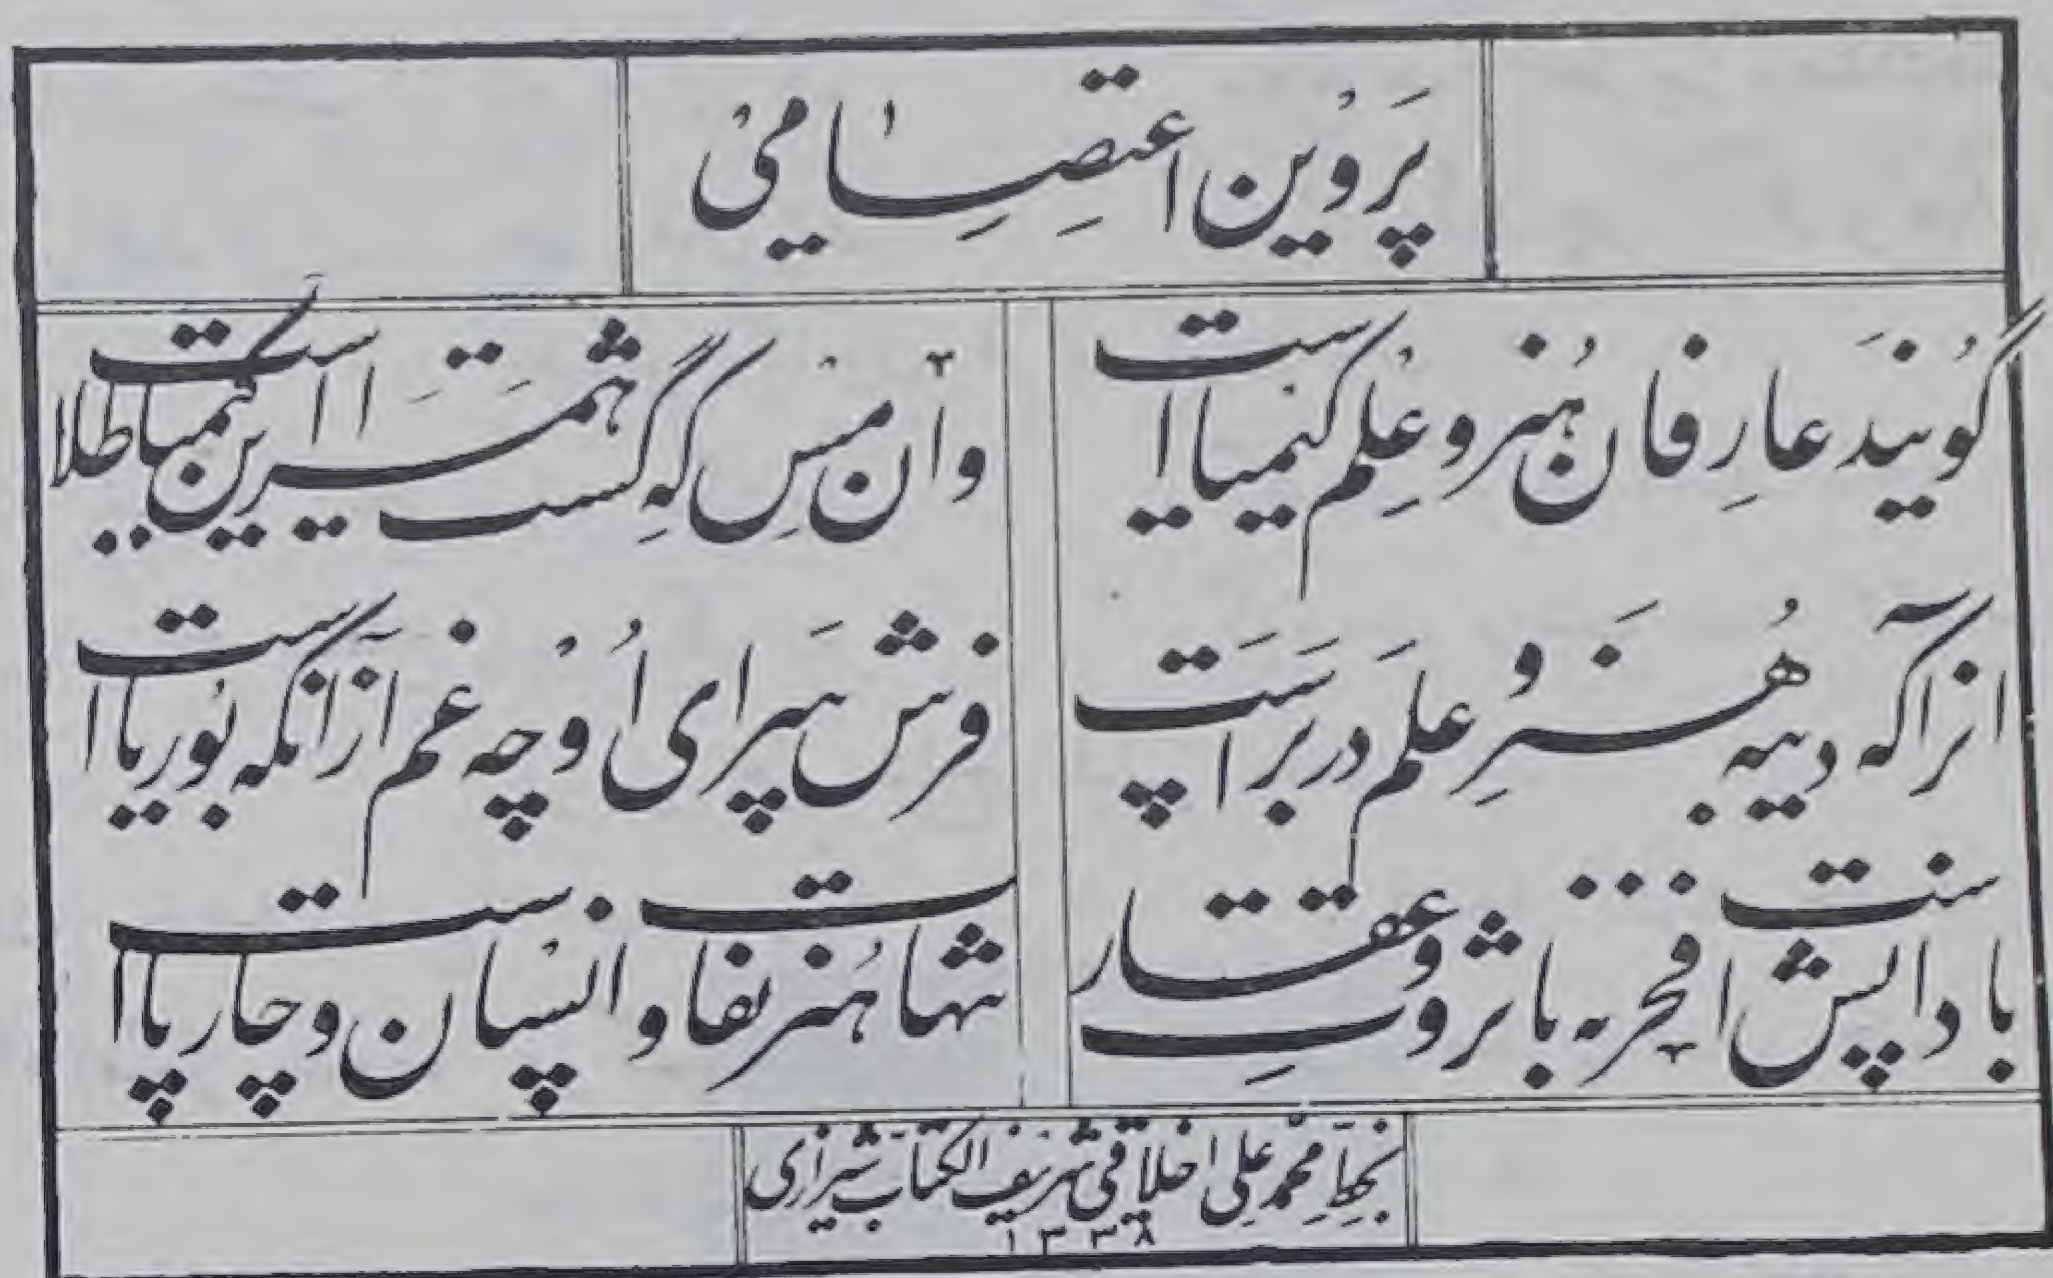 پروین اعتصامی
گویند عارفان هنر و علم کیمیا است
وان مس که گشت همسر این کیمیا طلا است
انرا که دیبه هنر و علم در بر است
فرش سرای او چه غم ار زانکه بوریا است
با دانش است فخر نه با ثروت و عقار
تنها هنر تفاوت انسان و چارپا است
بخط محمد علی اخلاقی شریف الکتاب شیرازی
۱۳۳۸